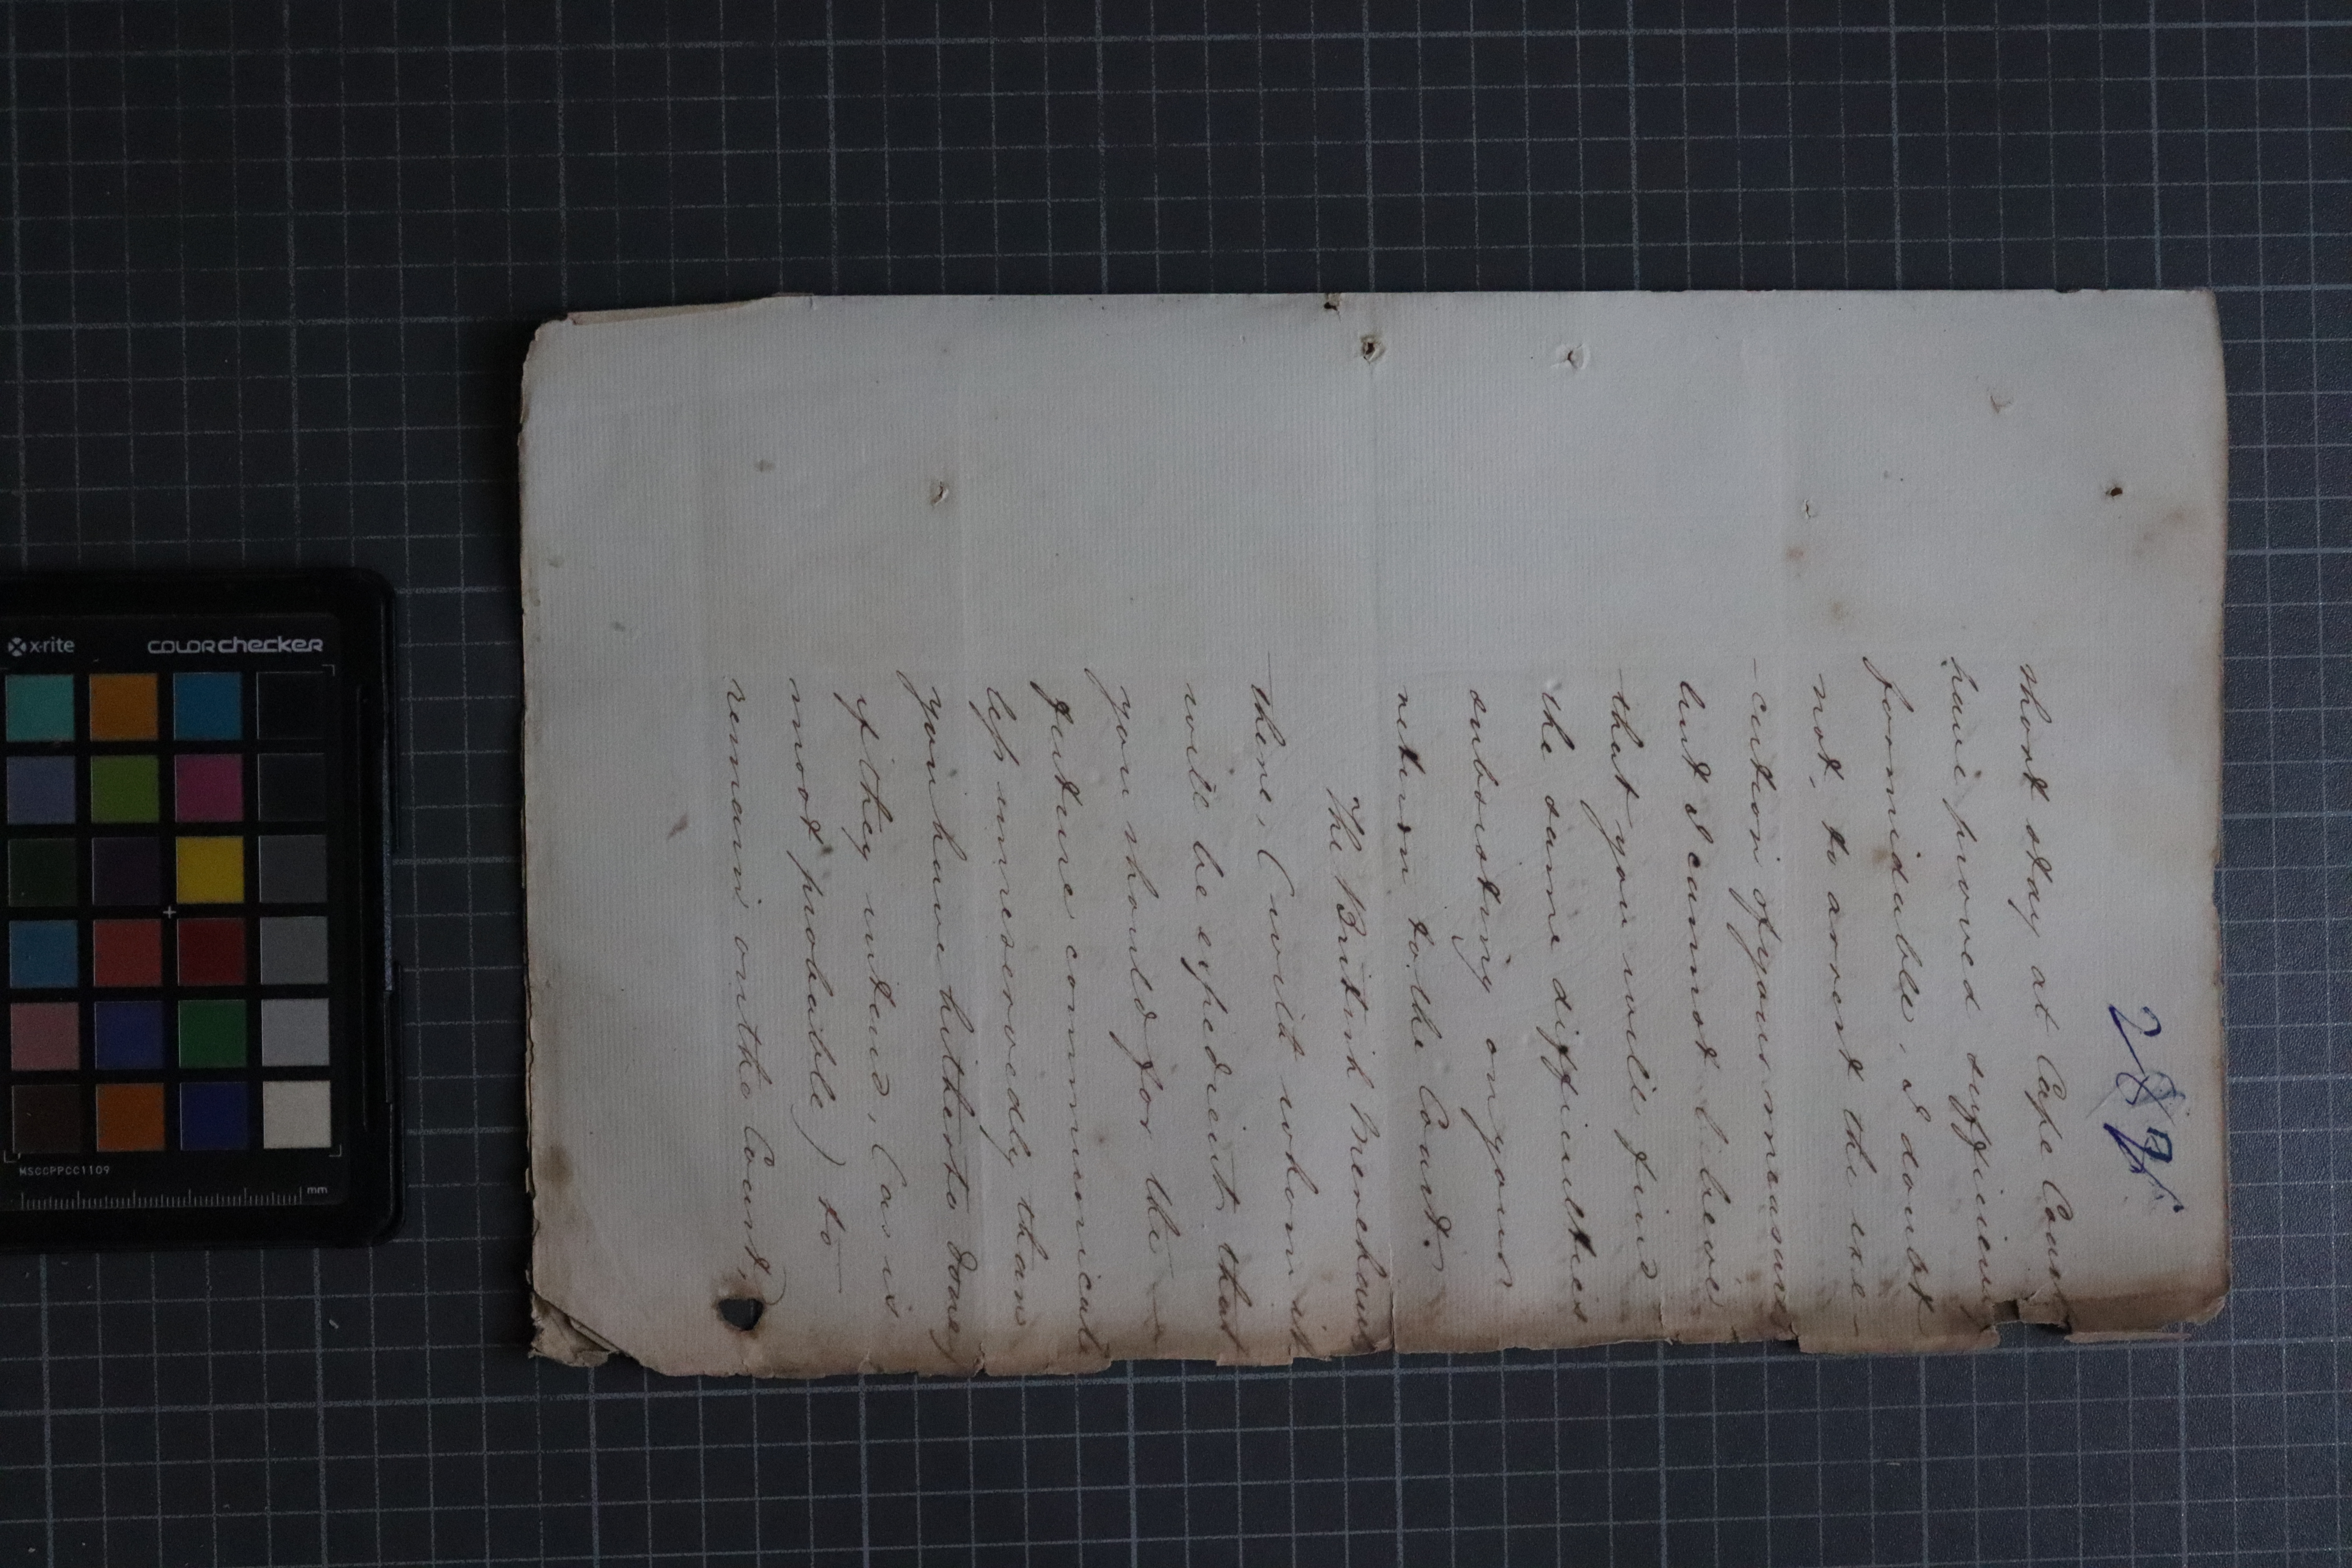 short stay at Cape Coast
have proved sufficiently
formidable, I doubt
not, to arrest the exe-
-cution of your measures
but I cannot believe
that you will find
the same difficulties
subsisting on your
return to the Coast.
The British Merchants
there, (with whom it
will be expedient that
you should for the
future communicate
less unreservedly than
you have hitherto done,
if they intend, (as is
most probable) to
remain on the Coast,)
x-rite
colorchecker
MSCCPPCC1109
mm